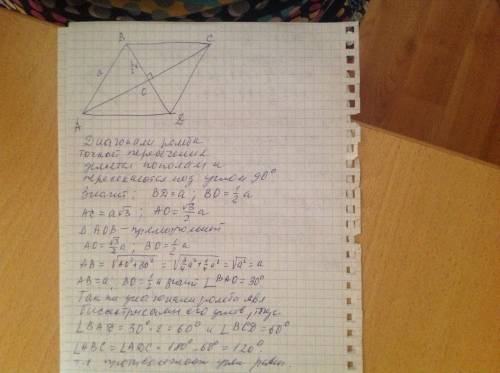 B
C
a
O
A
D
Диагонали ромба
точкой пересечения
делятся пополам и
пересекаются под углом 90°
Значит: BD = a; BO = 1/2 a
AC = a√3; AO = √3/2 a
Δ AOB – прямоугольный
AO = √3/2 a; BO = 1/2 a
AB = √AO²+BO² = √3/4a²+1/4a² = √a² = a
AB = a; BO = 1/2 и значит ∠BAO = 30°
Так как диагонали ромба явл
биссектрисами его углов, то
∠BAD = 30°·2 = 60° и ∠BCD = 60°
∠ABC = ∠ADC = 180°-60° = 120°
т.к противолежат углы равны.